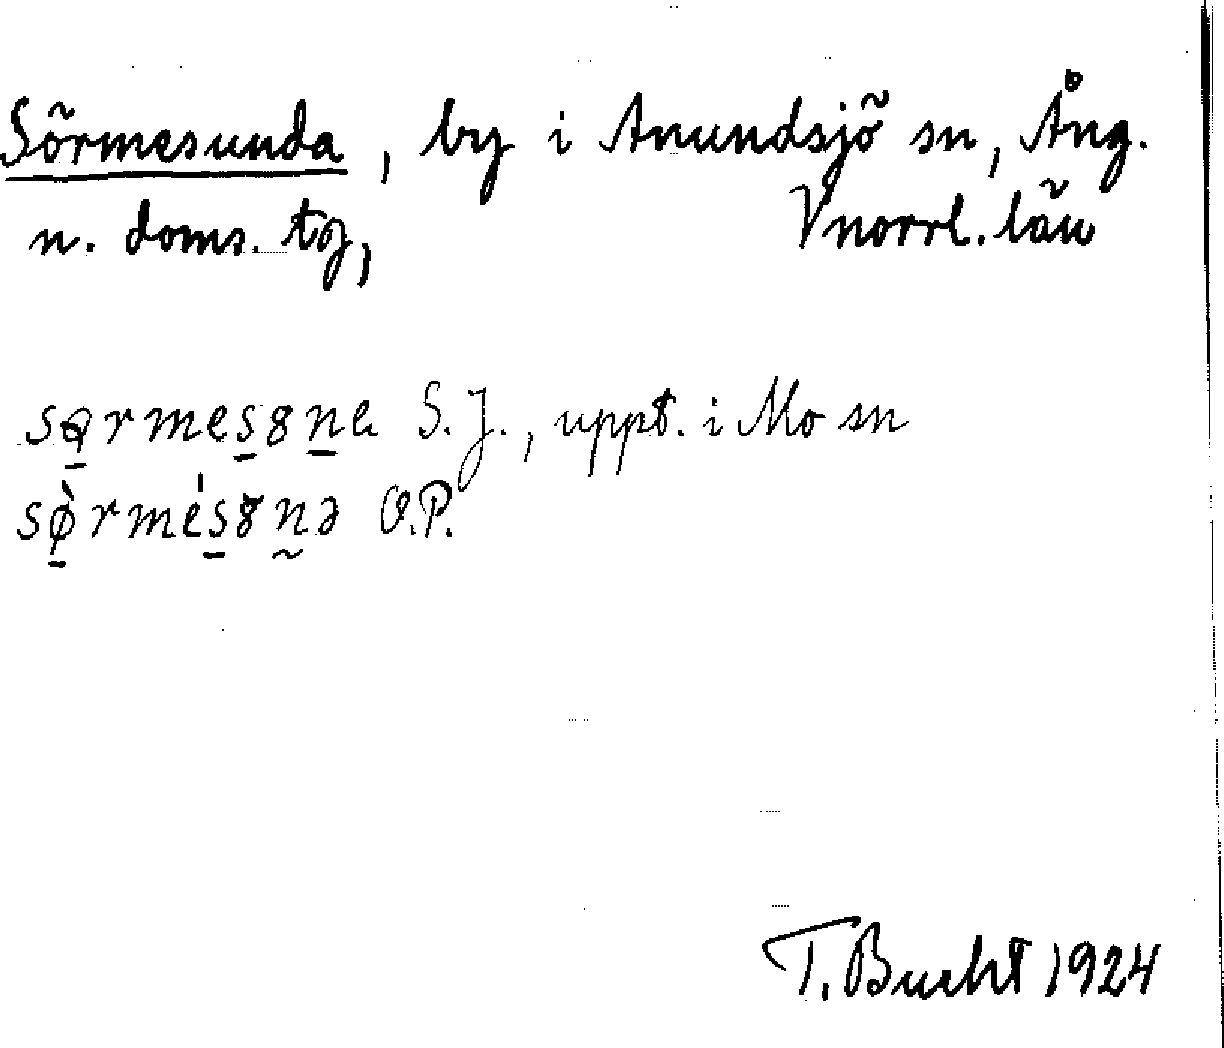 Sörmesunda, by i Anundsjö sn, Ång.
n. doms. tg, Vnorrl. län
sǫrmes8ne S.J., uppt. i Mo sn
sø̠̀rmés̠8n̰ə O.P.
T. Bucht 1924